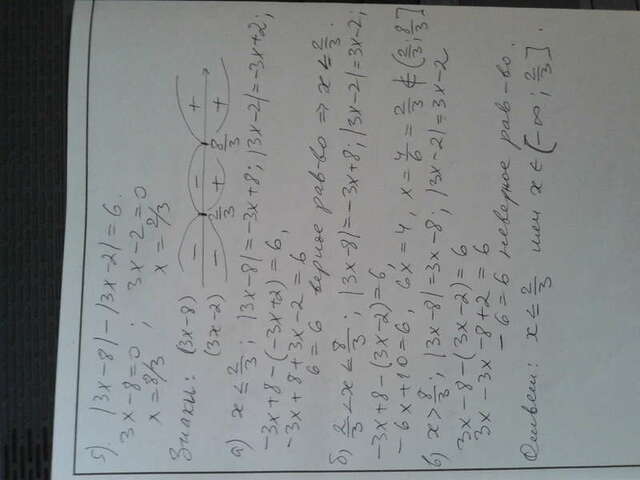 5). |3x-8|-|3x-2|=6.
3x-8=0 ; 3x-2=0
x=8/3 x=2/3
Знаки: (3x-8) - - +
2/3 8/3
(3x-2) - + +
а) x≤2/3; |3x-8|=-3x+8; |3x-2|=-3x+2;
-3x+8-(-3x+2)=6,
-3x+8+3x-2=6
6=6 верное рав-во => x≤2/3.
б) 2/3<x≤8/3; |3x-8|=-3x+8; |3x-2|=3x-2;
-3x+8-(3x-2)=6,
-6x+10=6, 6x=4, x=4/6=2/3 ∉ (2/3; 8/3]
в) x>8/3; |3x-8|=3x-8; |3x-2|=3x-2
3x-8-(3x-2)=6
3x-3x-8+2=6
-6=6 неверное рав-во.
Ответ: x≤2/3 или x∈(-∞; 2/3].